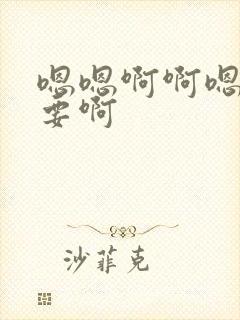 嗯嗯啊啊嗯
要啊
沙菲克